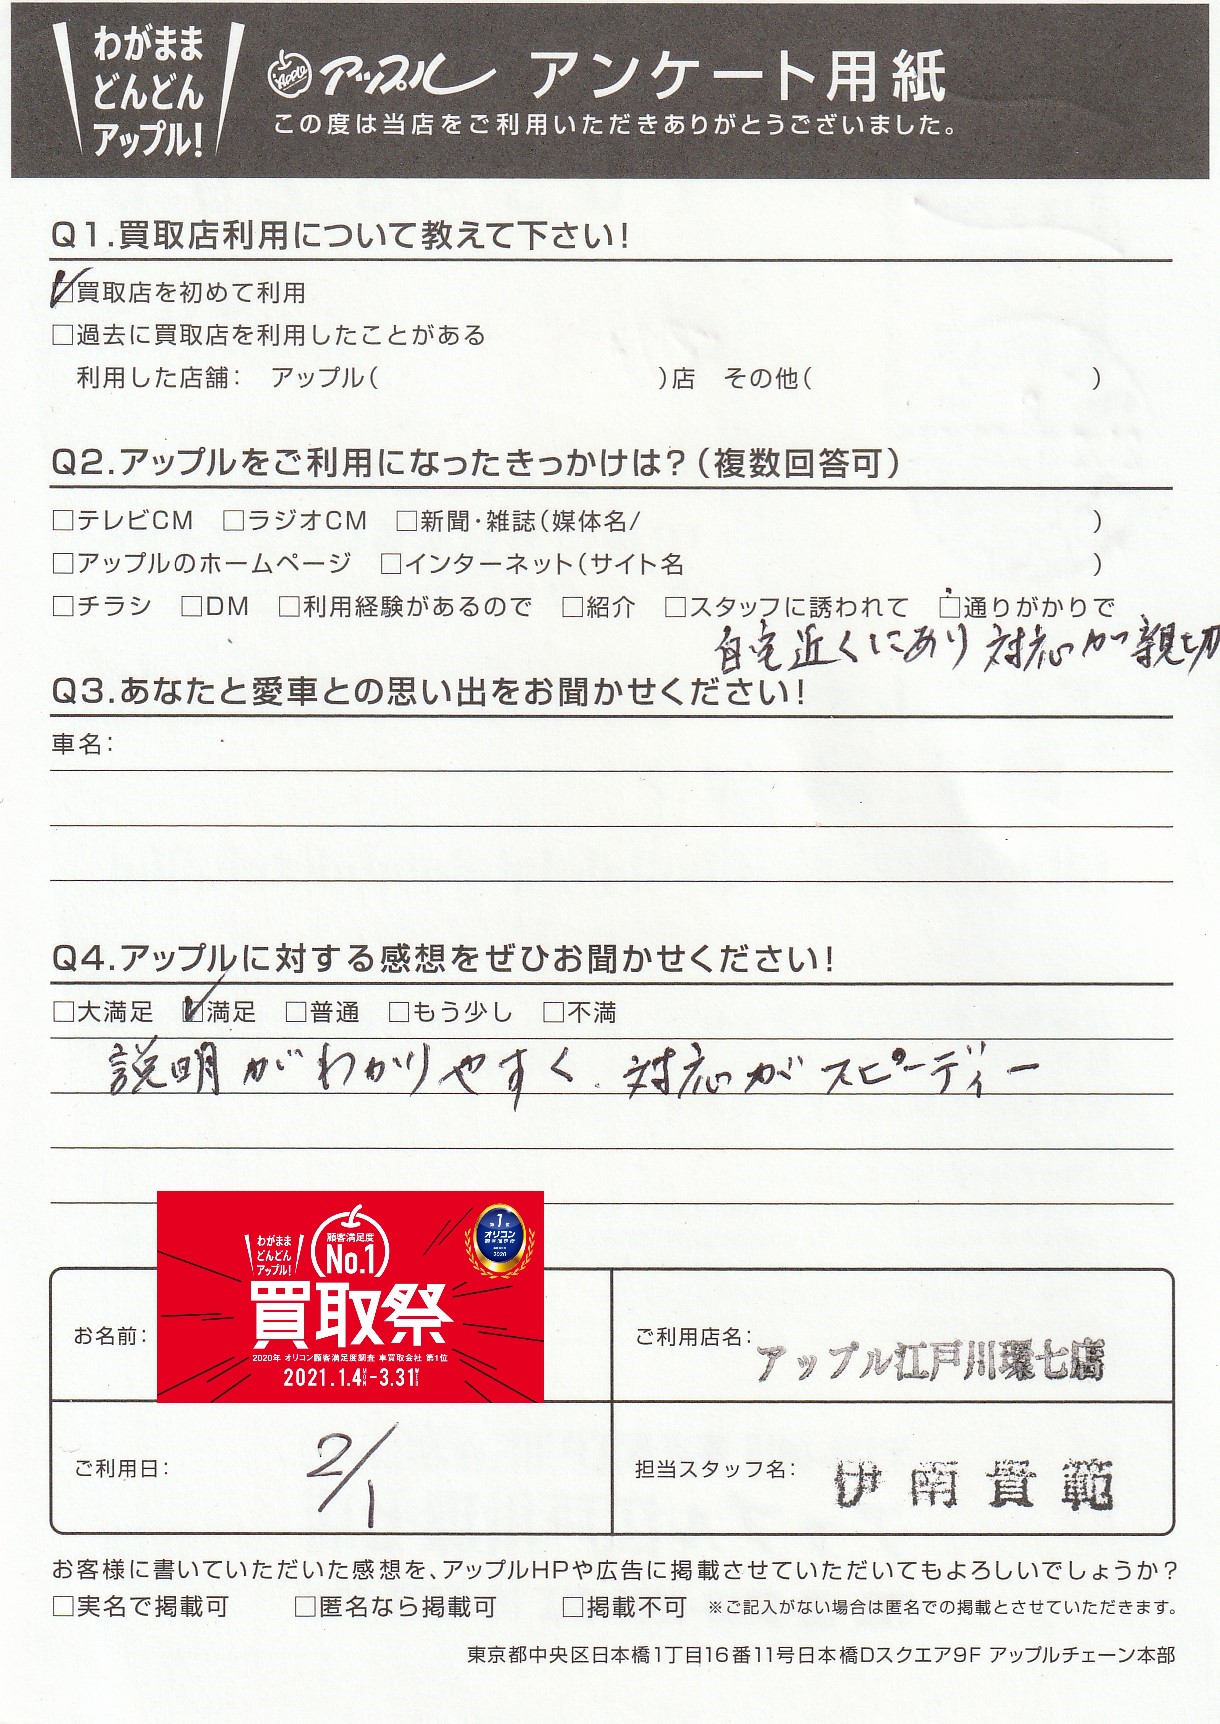 わがまま
どんどん
アップル!
Apple アップル アンケート用紙
この度は当店をご利用いただきありがとうございました。
Q1.買取店利用について教えて下さい!
☑買取店を初めて利用
□過去に買取店を利用したことがある
利用した店舗: アップル( )店 その他( )
Q2.アップルをご利用になったきっかけは?(複数回答可)
□テレビCM □ラジオCM □新聞・雑誌(媒体名/ )
□アップルのホームページ □インターネット(サイト名 )
□チラシ □DM □利用経験があるので □紹介 □スタッフに誘われて □通りがかりで
自宅近くにあり 対応が親切
Q3.あなたと愛車との思い出をお聞かせください!
車名:
Q4.アップルに対する感想をぜひお聞かせください!
□大満足 ☑満足 □普通 □もう少し □不満
説明がわかりやすく、対応がスピーディー
わがまま
どんどん
アップル!
顧客満足度
No.1
第1位
オリコン
顧客満足度
2020
買取祭
2020年 オリコン顧客満足度調査 車買取会社 第1位
2021.1.4MON-3.31WED
お名前:
ご利用店名: アップル江戸川環七店
ご利用日: 2/1
担当スタッフ名: 伊南貴範
お客様に書いていただいた感想を、アップルHPや広告に掲載させていただいてもよろしいでしょうか?
□実名で掲載可 □匿名なら掲載可 □掲載不可 ※ご記入がない場合は匿名での掲載とさせていただきます。
東京都中央区日本橋1丁目16番11号日本橋Dスクエア9F アップルチェーン本部